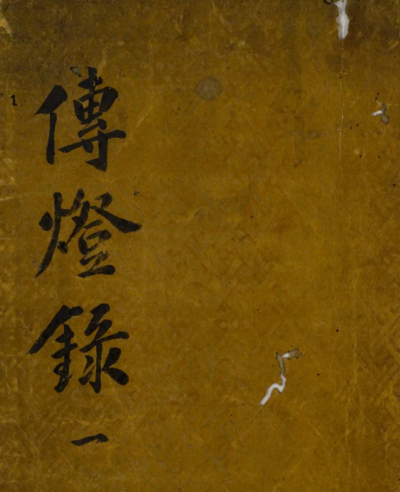 傳燈錄一